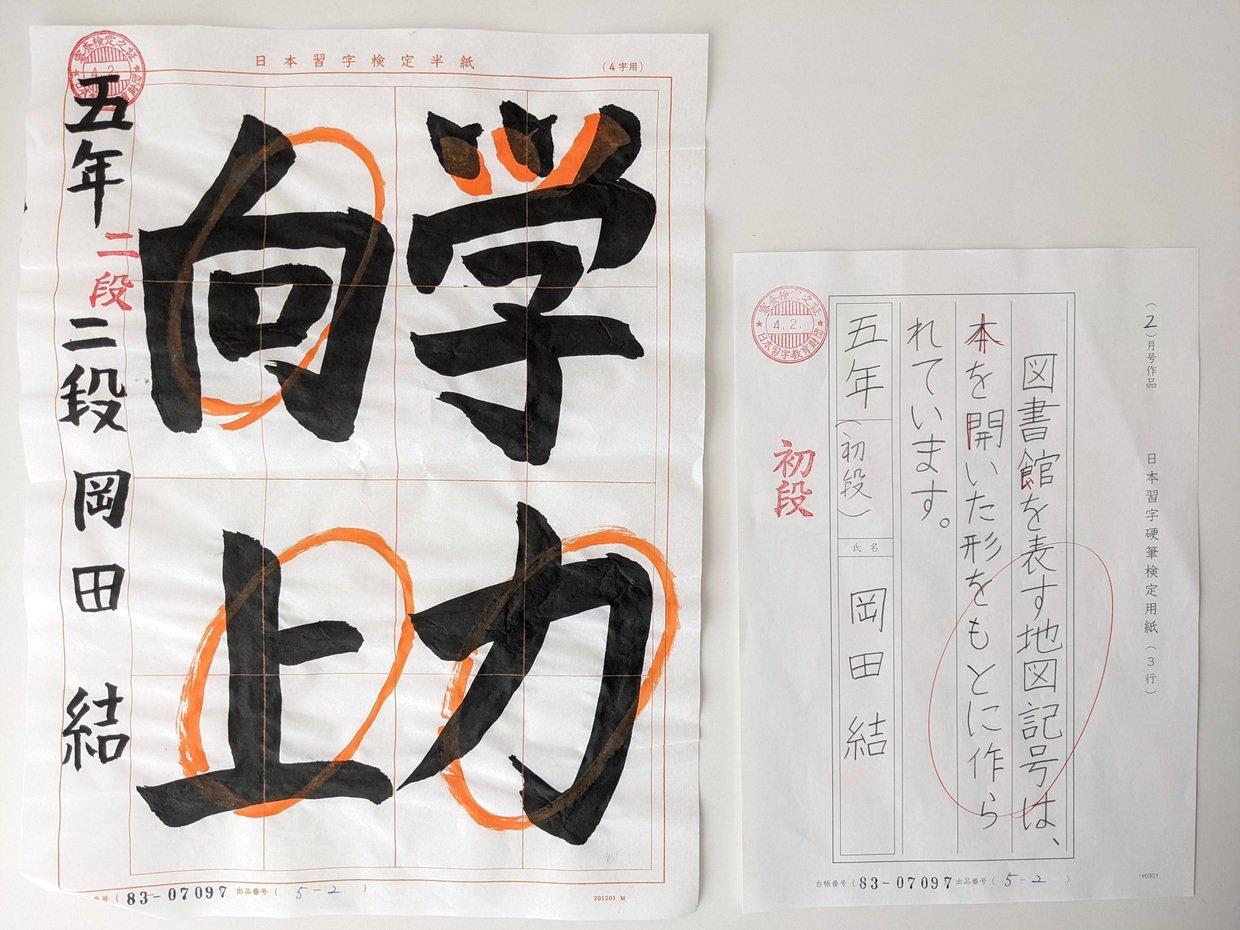 日本習字検定半紙
(4字用)
学力
向上
五年 二段 岡田 結
二段
審査検定之証
4.2.
83-07097 出品番号 ( 5-2 )
201201 M
(2)月号作品 日本習字硬筆検定用紙(3行)
図書館を表す地図記号は、
本を開いた形をもとに作ら
れています。
五年 (初段) 氏名 岡田 結
初段
審査検定之証
4.2.
日本習字教育財団
台帳番号 ( 83-07097 出品番号 ( 5-2 )
190301